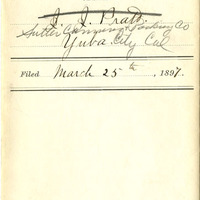 J. J. Pratt
Sutter Canning & Packing Co
Yuba City Cal
Filed March 25th, 1897.